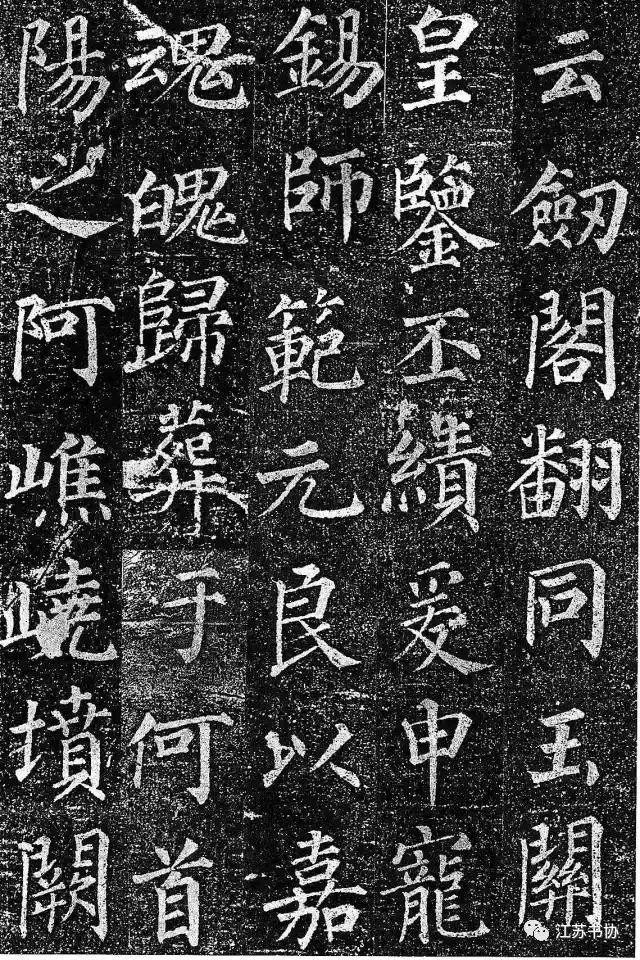 云劒閣翻同玉關
皇鑒丕績爰申寵
錫師範元良以嘉
魂魄歸葬于何首
陽之阿嶕嶢墳闕
江苏书协